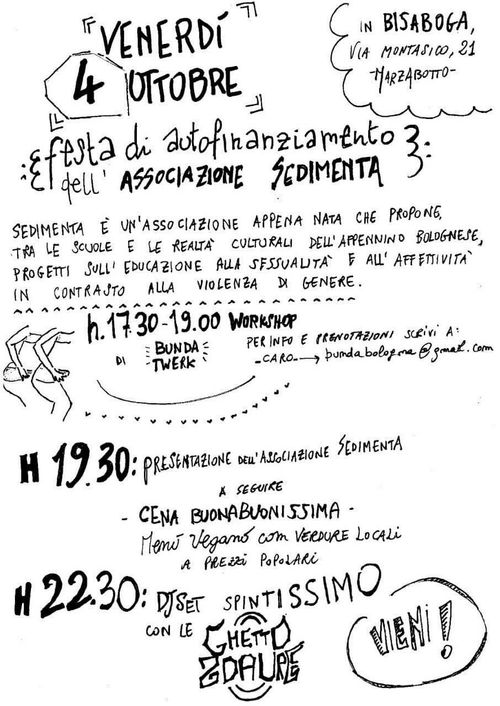 VENERDÍ
4 OTTOBRE
IN BISABOGA,
VIA MONTASICO, 21
-MARZABOTTO-
festa di autofinanziamento
dell' ASSOCIAZIONE SEDIMENTA
SEDIMENTA È UN'ASSOCIAZIONE APPENA NATA CHE PROPONE,
TRA LE SCUOLE E LE REALTÀ CULTURALI DELL'APPENNINO BOLOGNESE,
PROGETTI SULL'EDUCAZIONE ALLA SESSUALITÀ E ALL'AFFETTIVITÀ
IN CONTRASTO ALLA VIOLENZA DI GENERE.
h. 17.30-19.00 WORKSHOP
DI BUNDA
TWERK
PER INFO E PRENOTAZIONI SCRIVI A:
-CARO-→ bundabologna@gmail.com
H 19.30: PRESENTAZIONE DELL'ASSOCIAZIONE SEDIMENTA
A SEGUIRE
- CENA BUONABUONISSIMA -
Menù Vegano com VERDURE LOCALI
A PREZZI POPOLARI
H 22.30: DJSET SPINTISSIMO
CON LE GHETTO
ZDAURE
VIENI!